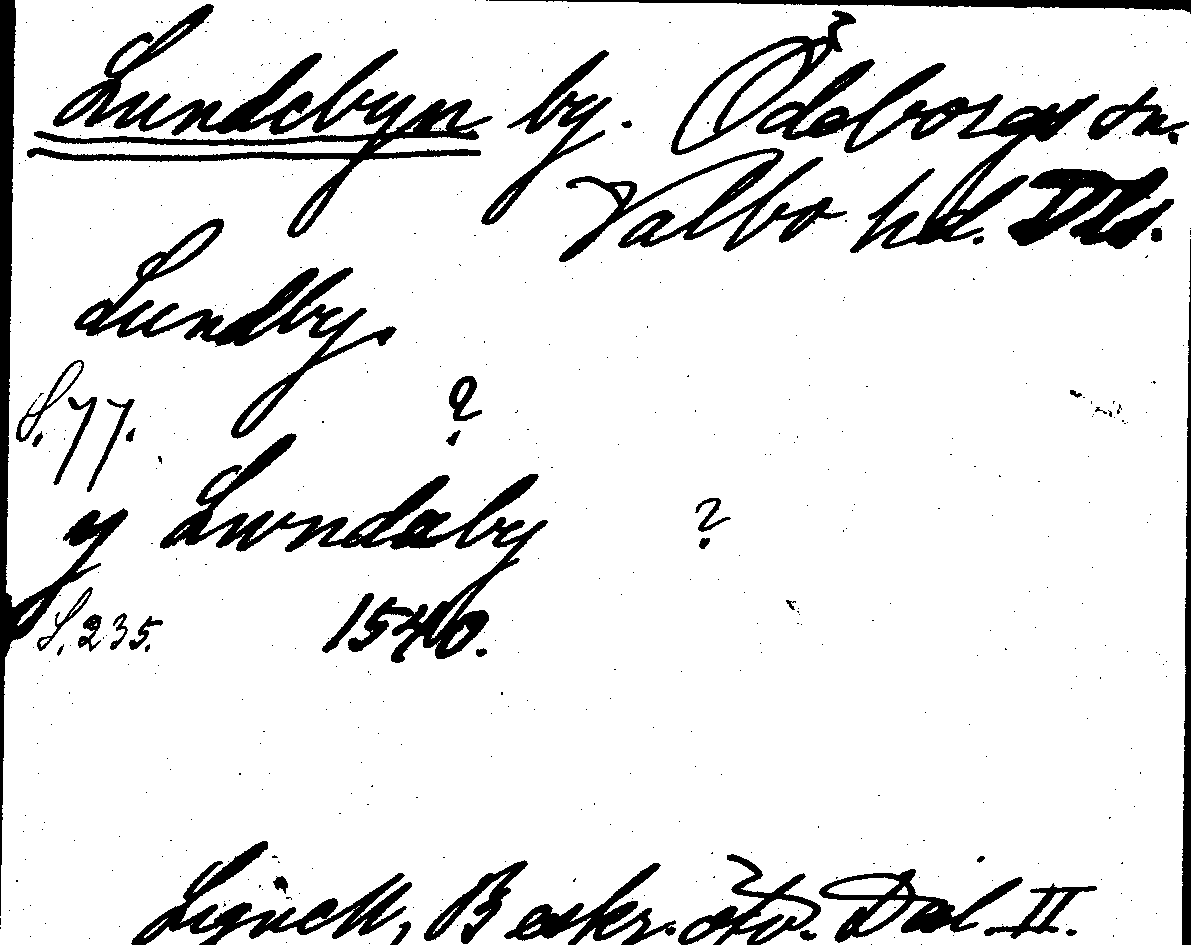 Lundebyn by. Ödeborgs sn.
Valbo hd. Dls.
Lundby.
S. 77. ?
y Lundaby ?
S. 235. 1540.
Lignell, Beskr. öfv. Dal II.